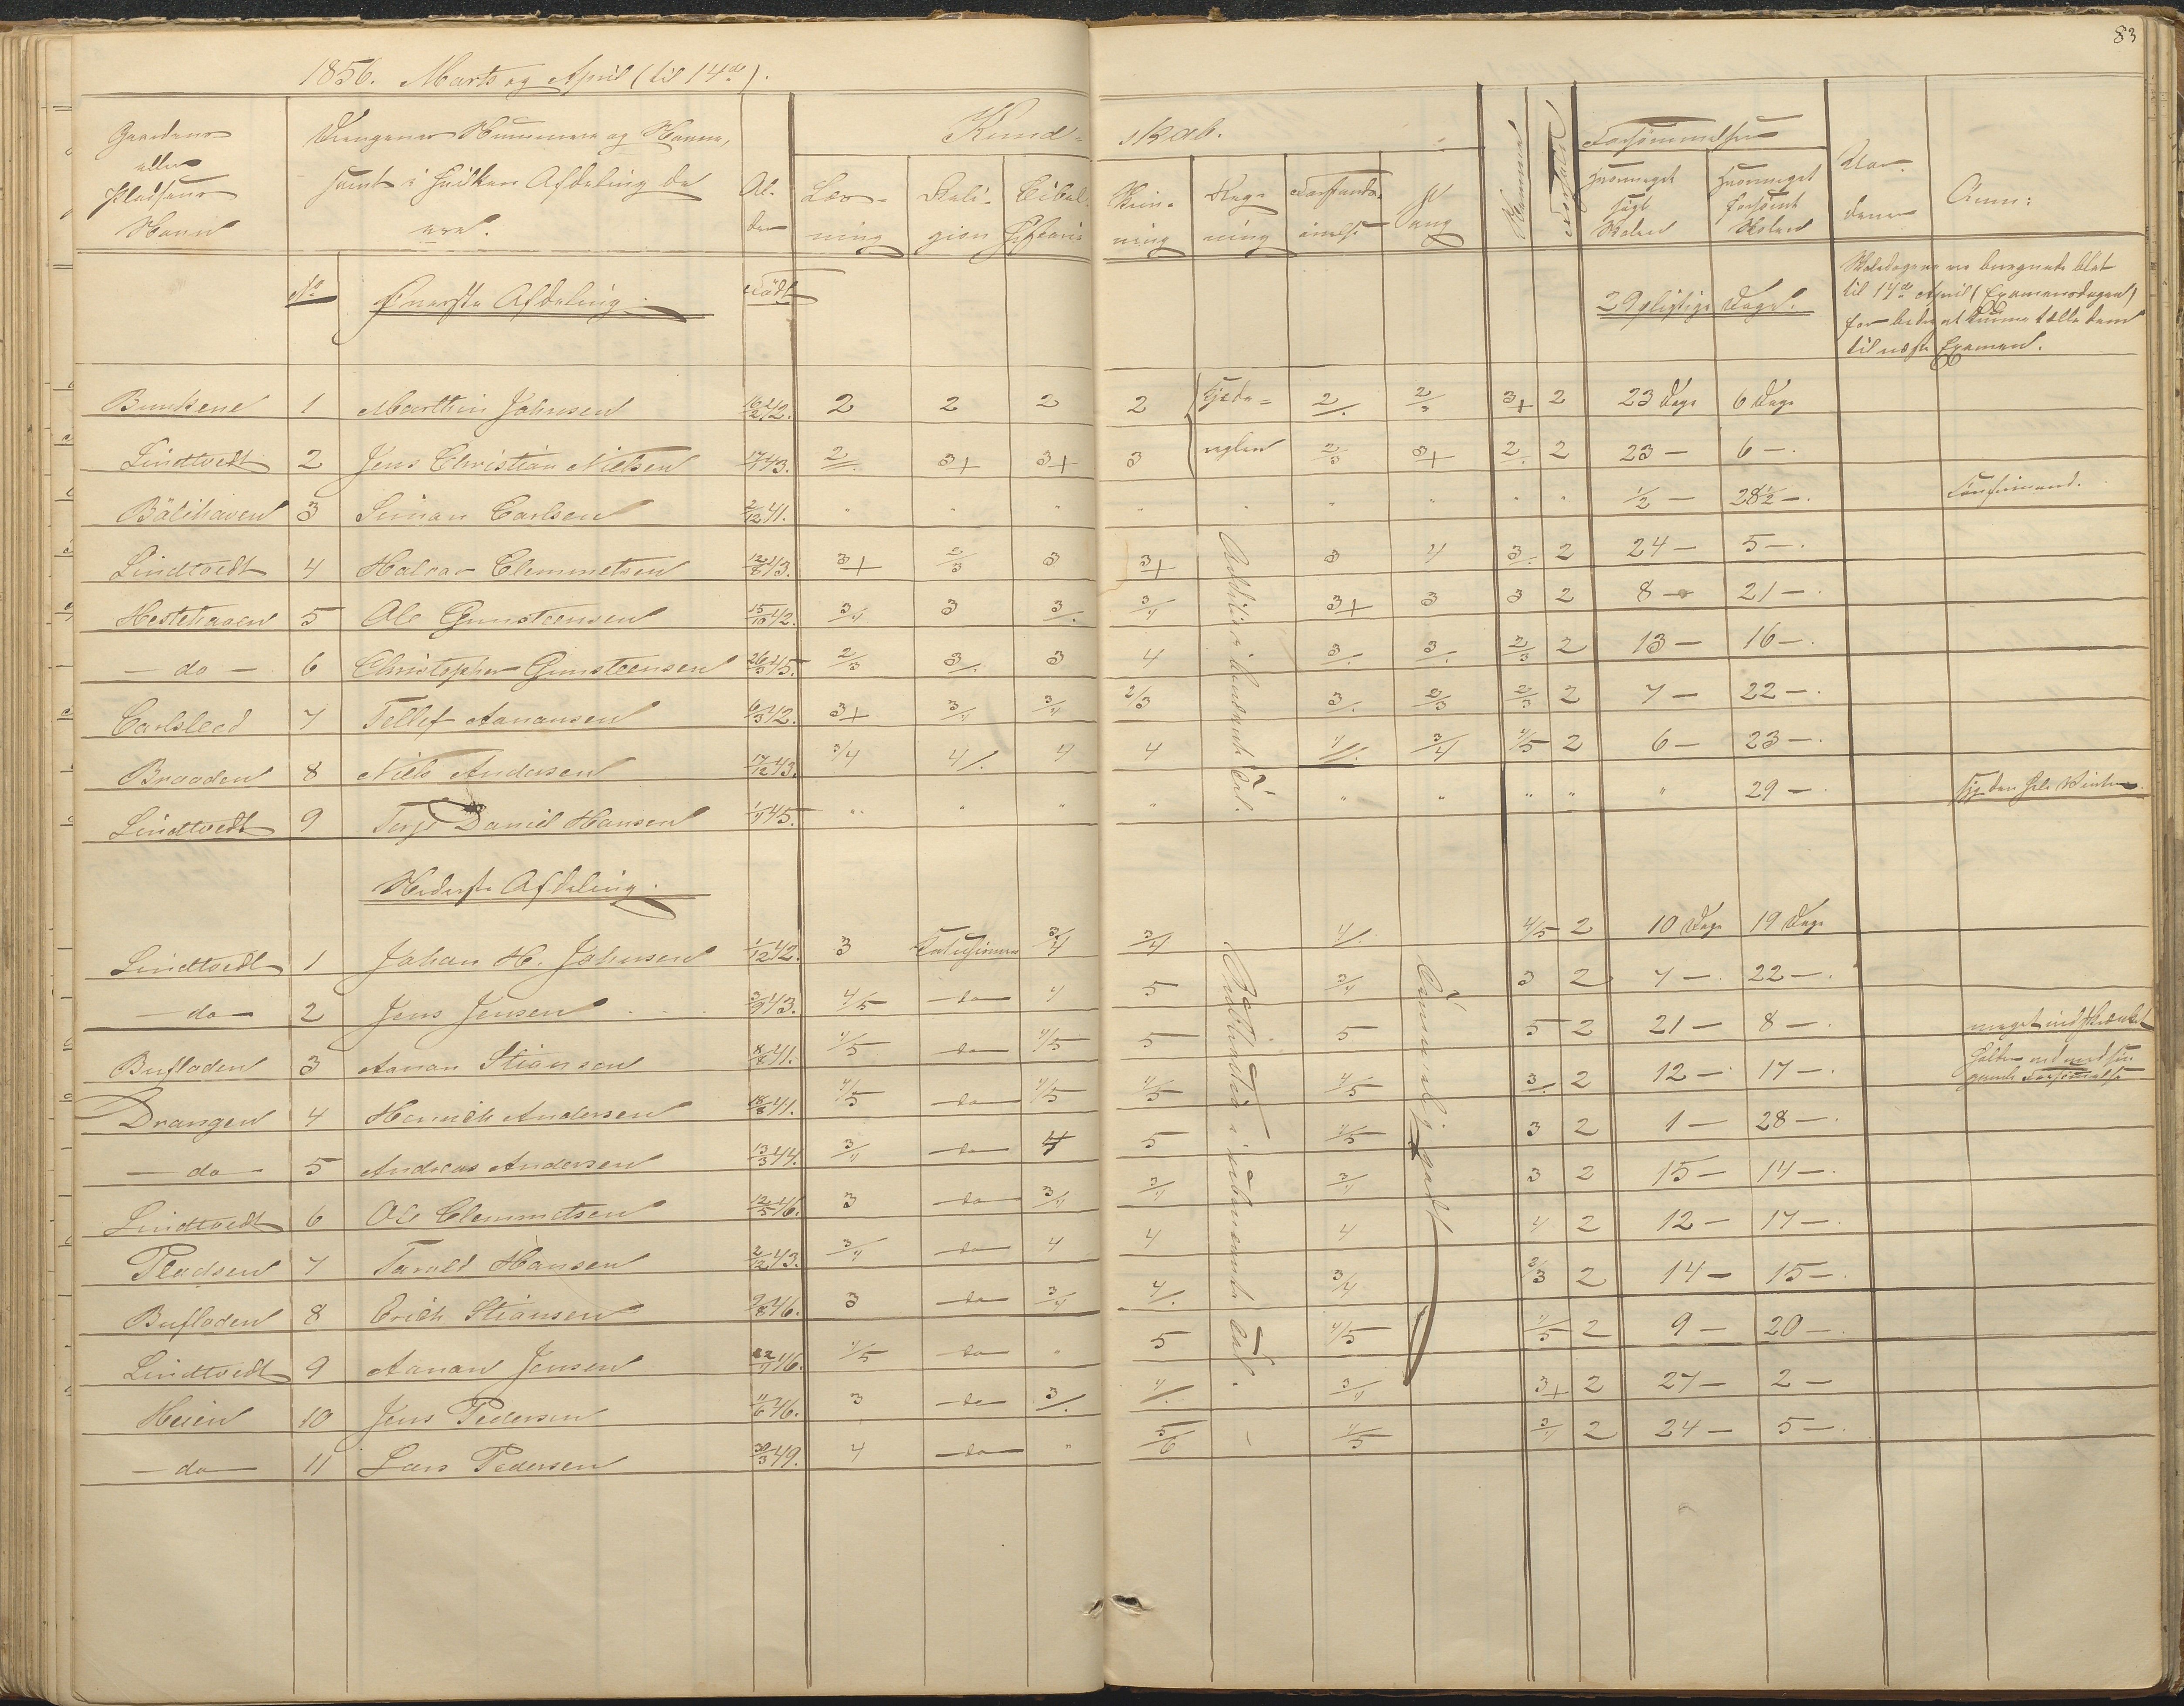 83
1856. Marts og April (til 14de).
Gaardens eller Pladsens Navn
Drengenes Nummere og Navne, samt i hvilken Afdeling de ere.
Al- der
Kund- skab.
Læs- ning
Reli- gion
Bibel- historie
Skriv- ning
Reg- ning
Forstands- øvelse
Sang
Nemme
Forhold
Forsømmelser
Hvormeget søgt Skolen
Hvormeget forsømt Skolen
Anm:
No Øverste Afdeling. Født 29 pligtige Dage.
Skoledagene ere beregnede blot
til 14de April (Examensdagen)
for bedre at kunne tælle dem
til næste Examen.
Bunkene 1 Marthin Johnsen 16/2 42. 2 2 2 2 Kjede- 2/. 2/3 3+ 2 23 Dage 6 Dage
Lindtvedt 2 Jens Christian Nielsen 17/1 43. 2/. 3+ 3+ 3 reglen 2/3 3+ 2/. 2 23 — 6 —.
Bälihaven 3 Simon Carlsen 2/12 41. " " " " " " " " ½ — 28½ —. Confirmand.
Lindtvedt 4 Halvor Clemmetsen 12/8 43. 3+ 2/3 3 3+ 3 4 3/. 2 24 — 5 —.
Hestehaven 5 Ole Gunsteensen 15/10 42. 3/4 3 3/. 3/4 3+ 3 3 2 8 — 21 —.
— do — 6 Christopher Gunsteensen 26/3 45. 2/3 3/. 3 4 3/. 3/. 2/3 2 13 — 16 —.
Carlsleed 7 Tellef Aanansen 6/3 42. 3+ 3/4 3/4 2/3 3/. 2/3 2/3 2 7 — 22 —.
Braaden 8 Niels Andersen 17/12 43. 3/4 4/. 4 4 4/. 3/4 4/5 2 6 — 23 —.
Lindtvedt 9 Terje Daniel Hansen 1/4 45. " " " " " " " " " 29 — syg den hele Vinter.
Addition i ubenævnte Tal.
Nederste Afdeling.
Lindtvedt 1 Johan H. Johnsen 1/12 42. 3 3/4 3/4 4/. 4/5 2 10 Dage 19 Dage
— do — 2 Jens Jensen 3/9 43. 4/5 — do 4 5 3/4 3 2 7 — 22 —.
Bufladen 3 Aanan Stiansen 8/8 41. 4/5 — do 4/5 5 5 5 2 21 — 8 —. meget indskrænket
Drangen 4 Henrich Andersen 18/8 41. 4/5 — do 4/5 4/5 4/5 3/. 2 12 — 17 —.
— do — 5 Andreas Andersen 13/3 44. 3/4 — do 4 5 4/5 3 2 1 — 28 —.
Lindtvedt 6 Ole Clemmetsen 12/5 46. 3 — do 3/4 3/4 3/4 3 2 15 — 14 —.
Pladsen 7 Tarald Hansen 2/12 43. 3/4 — do 4 4 4 4 2 12 — 17 —.
Bufladen 8 Erich Stiansen 9/8 46. 3 — do 3/4 4/. 3/4 2/3 2 14 — 15 —.
Lindtvedt 9 Aanan Jensen 22/4 46. 4/5 — do " 5 4/5 4/5 2 9 — 20 —.
Heien 10 Jens Pedersen 11/6 46. 3 — do 3/. 4/. 3/4 3+ 2 27 — 2 —
— do — 11 Lars Pedersen 30/3 49. 4 — do " 5/6 - 4/5 3/4 2 24 — 5 —.
Addition i ubenævnte Tal.